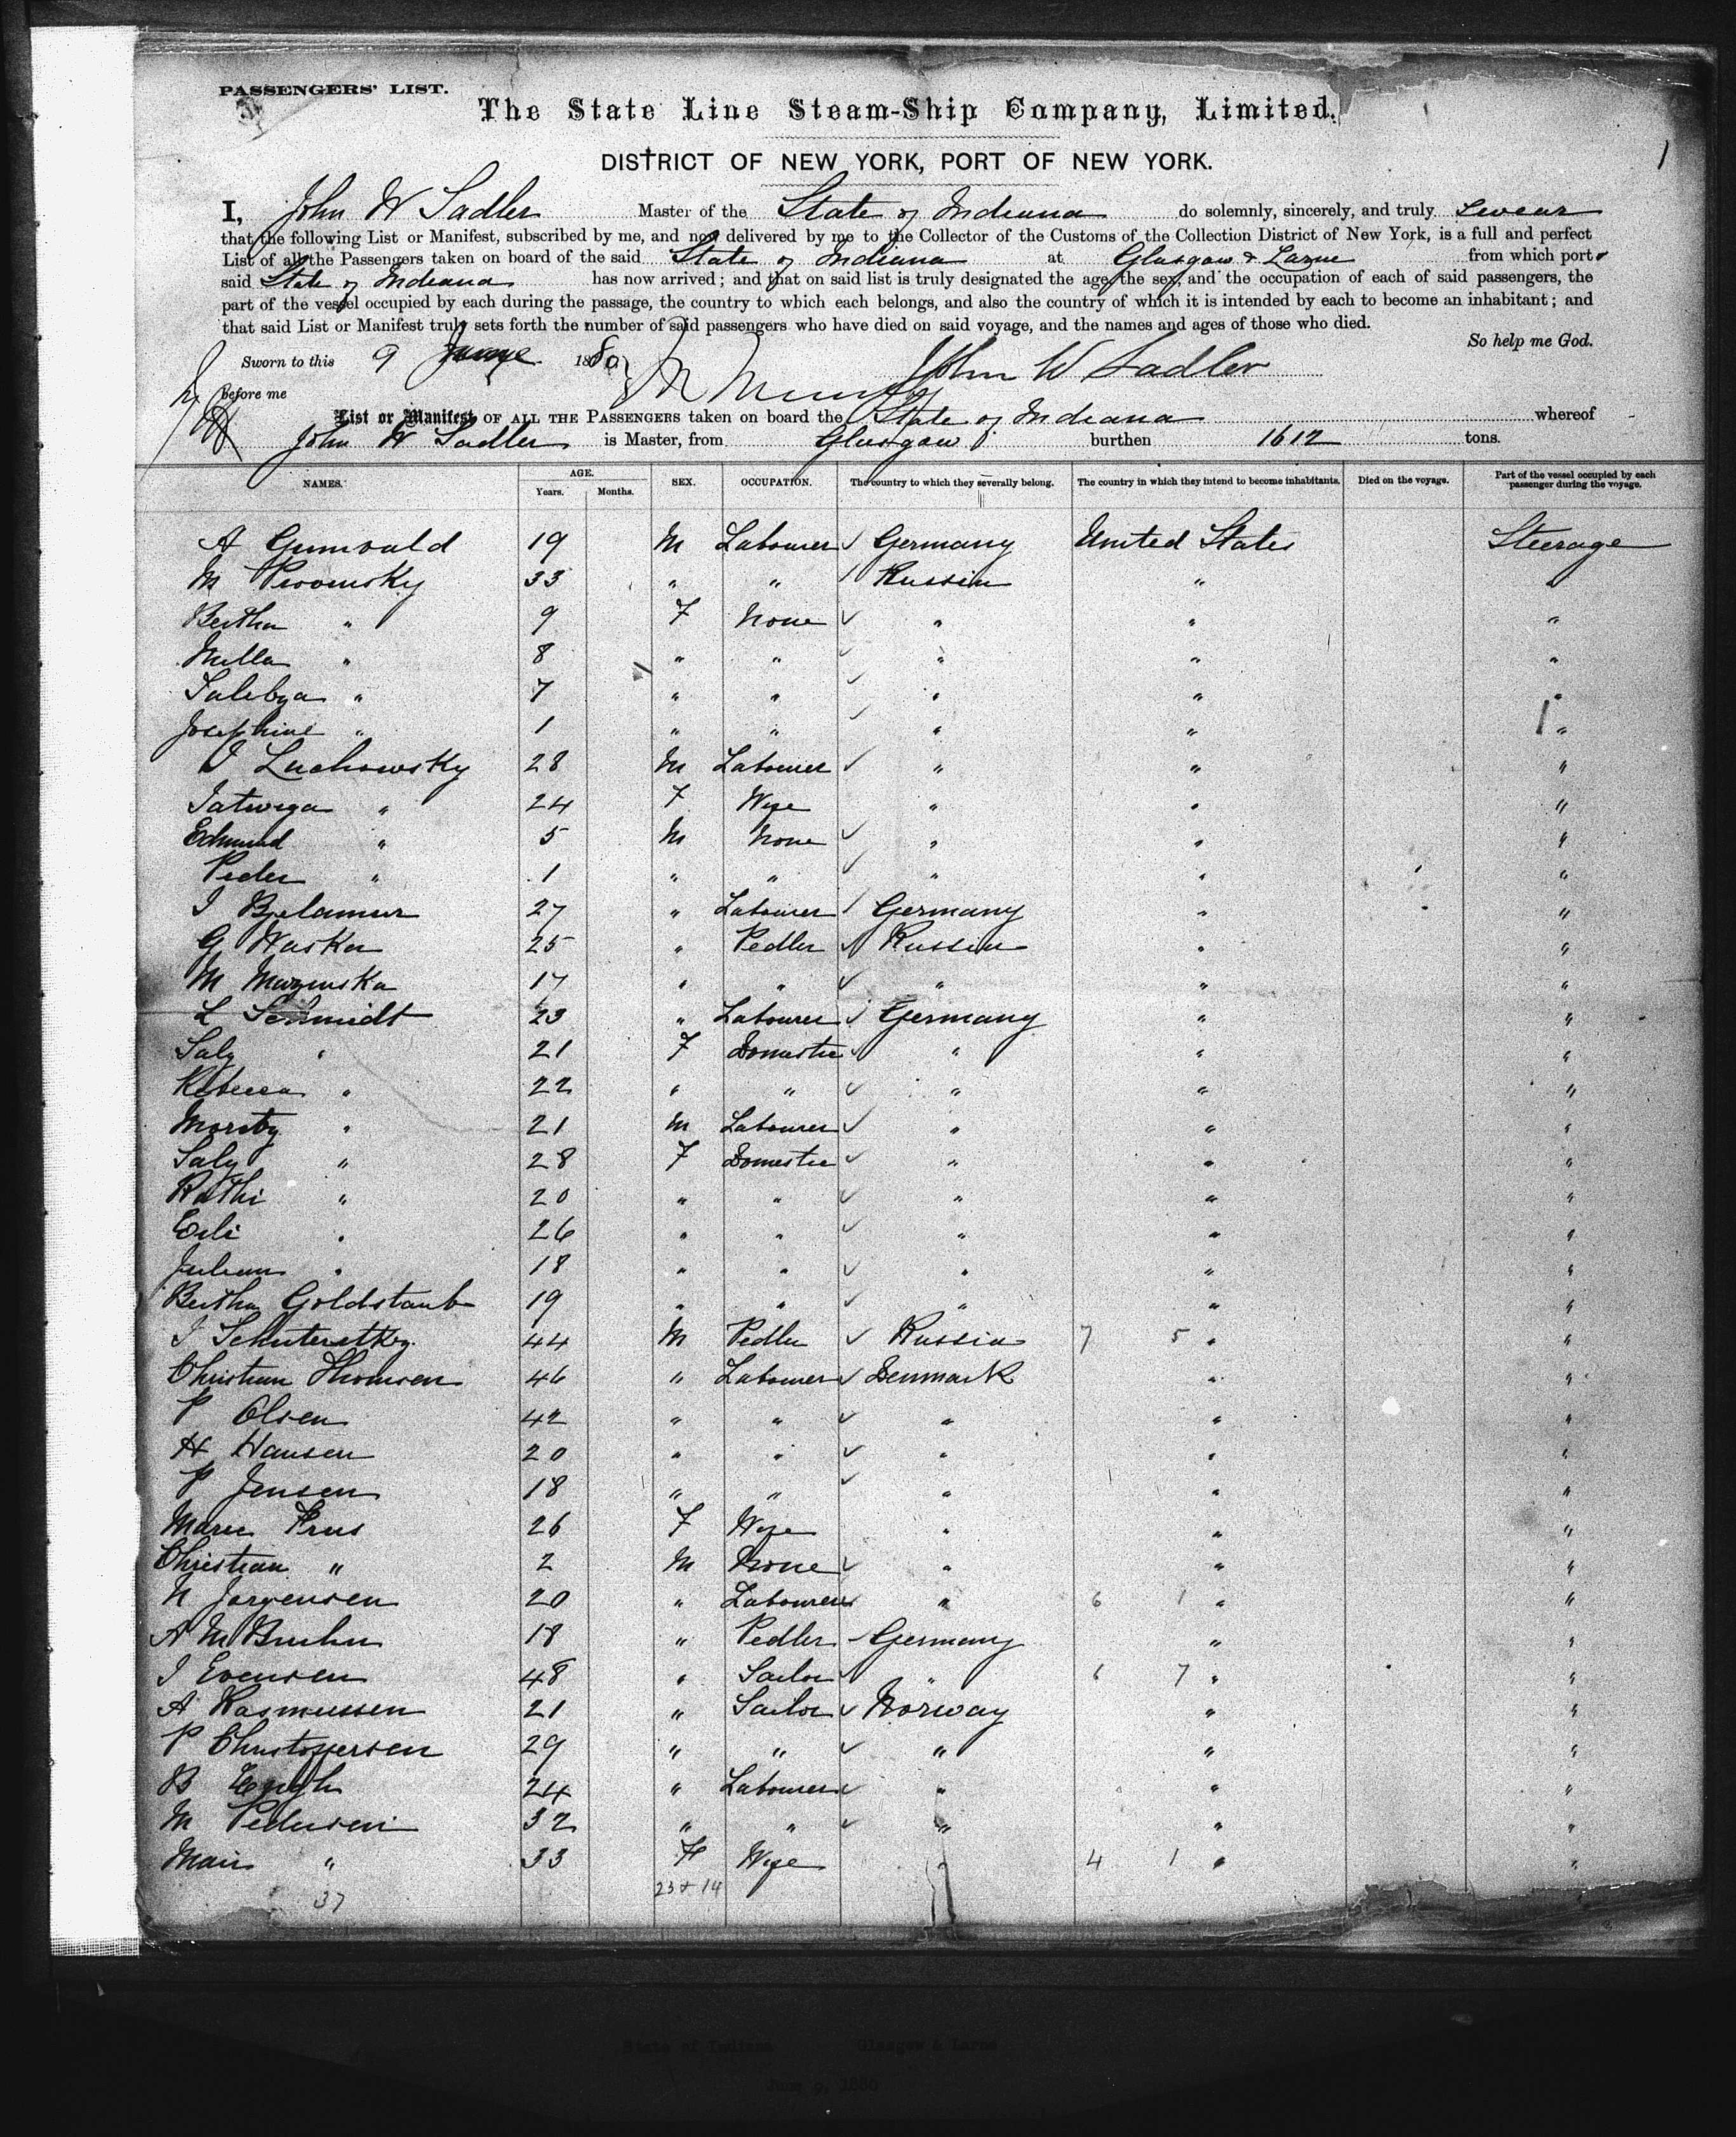 PASSENGERS' LIST.
The State Line Steam-Ship Company, Limited.
1
DISTRICT OF NEW YORK, PORT OF NEW YORK.
I, John W Sadler Master of the State of Indiana do solemnly, sincerely, and truly swear
that the following List or Manifest, subscribed by me, and now delivered by me to the Collector of the Customs of the Collection District of New York, is a full and perfect
List of all the Passengers taken on board of the said State of Indiana at Glasgow & Larne from which port
said State of Indiana has now arrived; and that on said list is truly designated the age, the sex, and the occupation of each of said passengers, the
part of the vessel occupied by each during the passage, the country to which each belongs, and also the country of which it is intended by each to become an inhabitant; and
that said List or Manifest truly sets forth the number of said passengers who have died on said voyage, and the names and ages of those who died.
So help me God.
Sworn to this 9 June 1880 John W Sadler
before me
List or Manifest OF ALL THE PASSENGERS taken on board the State of Indiana whereof
John W Sadler is Master, from Glasgow burthen 1612 tons.
NAMES. AGE. Years. Months. SEX. OCCUPATION. The country to which they severally belong. The country in which they intend to become inhabitants. Died on the voyage. Part of the vessel occupied by each passenger during the voyage.
A Grunwald 19 M Labourer Germany United States Steerage
M 33 " " Russia " "
Bertha " 9 F None " " "
Mella " 8 " " " " "
" 7 " " " " "
Josephine " 1 " " " " "
Luchowsky 28 M Labourer " " "
Jatwiga " 24 F Wife " " "
Edmund " 5 M None " " "
Peder " 1 " " " " "
I 27 " Labourer Germany " "
G Waska 25 " Pedler Russia " "
M 17 " " " " "
L Schmidt 23 " Labourer Germany " "
Saly " 21 F Domestic " " "
Rebecca " 22 " " " " "
Moritz " 21 M Labourer " " "
Saly " 28 F Domestic " " "
Kathi " 20 " " " " "
" 26 " " " " "
" 18 " " " " "
Bertha Goldstaub 19 " " " " "
I 44 M Pedler Russia 7 5 " "
Christian Thomsen 46 " Labourer Denmark " "
P Olsen 42 " " " " "
H Hansen 20 " " " " "
P Jensen 18 " " " " "
Marie 26 F Wife " " "
Christian " 2 M None " " "
N Jorgensen 20 " Labourer " 6 1 " "
A M Bruhn 18 " Pedler Germany " "
I Evensen 48 " Sailor " 6 7 " "
A Rasmussen 21 " Sailor Norway " "
P Christoffersen 29 " " " " "
B 24 " Labourer " " "
M Pedersen 32 " " " " "
Mari " 33 F Wife " 4 1 " "
37 23 + 14
State of Indiana Glasgow & Larne
June 9, 1880